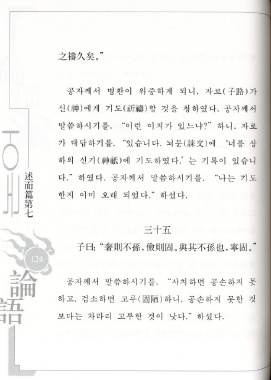 之禱久矣.”
공자께서 병환이 위중하게 되니, 자로(子路)가
신(神)에게 기도(祈禱)할 것을 청하였다. 공자께서
말씀하시기를, “이런 이치가 있느냐?” 하니, 자로
가 대답하기를, “있습니다. 뇌문(誄文)에 ‘너를 상
하의 신기(神祇)에 기도하였다.’ 는 기록이 있습니
다.” 하였다. 공자께서 말씀하시기를, “나는 기도
한지 이미 오래 되었다.” 하셨다.
三十五
子曰; “奢則不孫, 儉則固, 與其不孫也, 寧固.”
공자께서 말씀하시기를, “사치하면 공손하지 못
하고, 검소하면 고루(固陋)하니, 공손하지 못한 것
보다는 차라리 고루한 것이 낫다.” 하셨다.
述而篇第七
124
論語